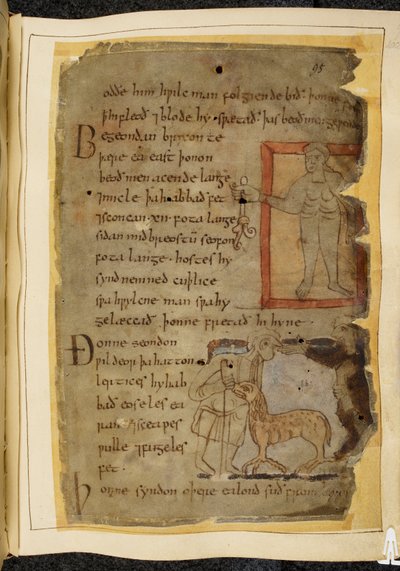 oððe him hwilc man folgiende bið · þonne
hy fleoð ⁊ blode hy swætað · þas beoð men
Begeondan brixonte
þære ea east þonon
beoð men acende lange
⁊ micle þa habbað fet
⁊ sconcan · xii · fota lange
sidan mid breostū seofon
fota lange · hostes hy
synd nemned cuþlice
swa hwylcne man swa hy
gelæccað þonne fretað hi hyne ·
Ðonne seondon
wildeor þa hatton
lertices hy hab
bað eoseles ea
ran ⁊ sceapes
wulle ⁊ fugeles
fet ·
Þonne syndon oþere ealond suð fram